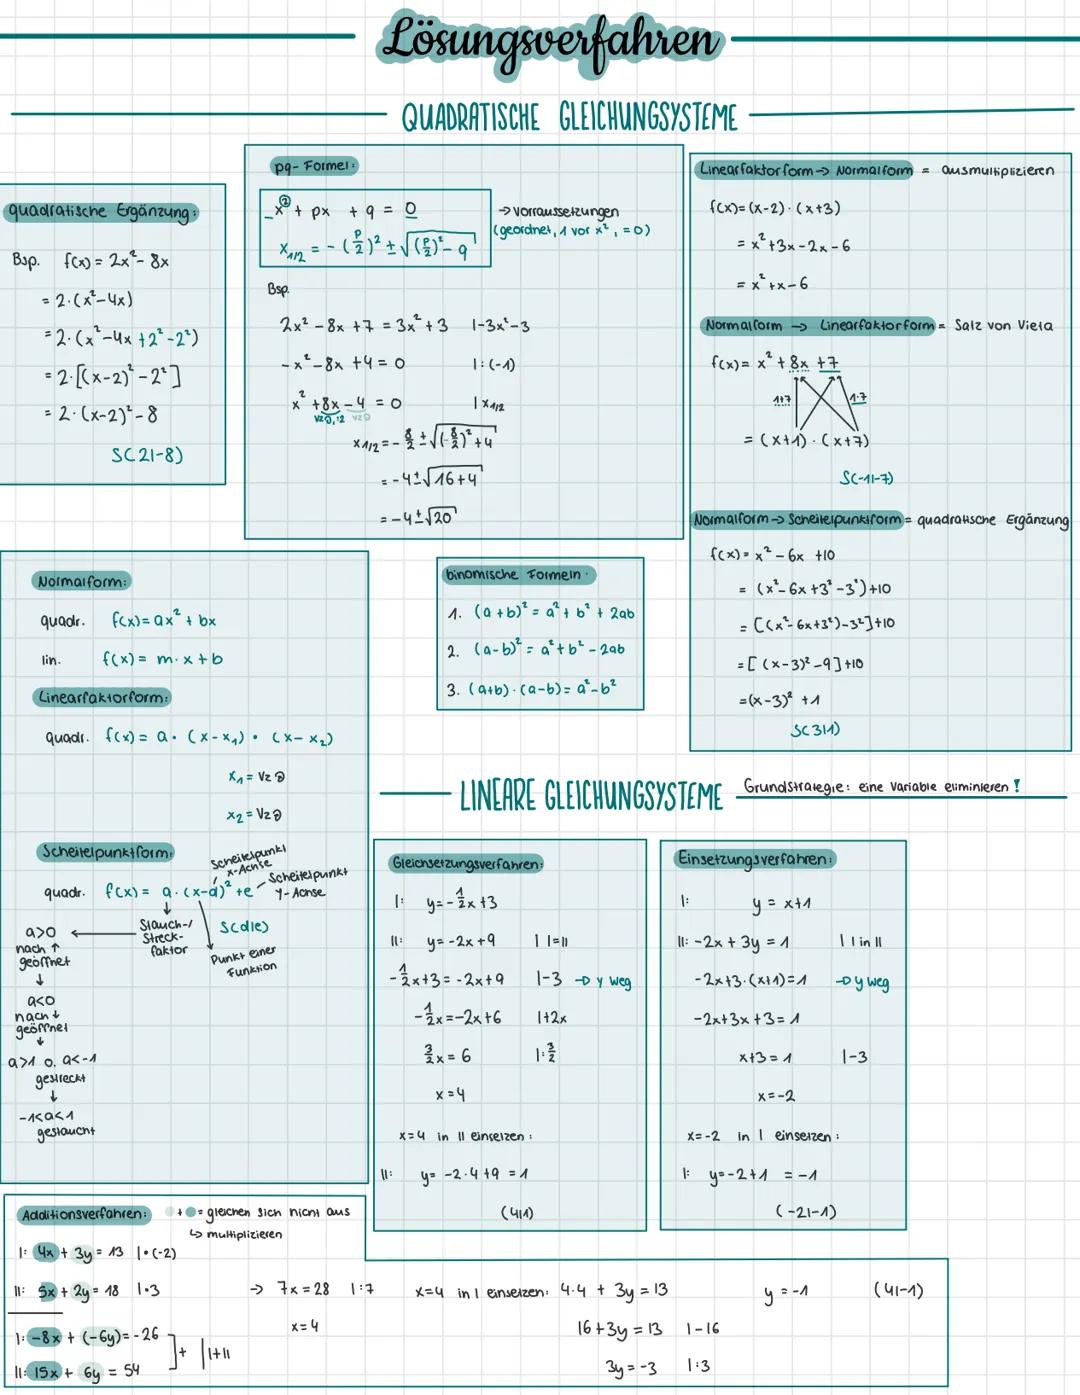 Lösungsverfahren
QUADRATISCHE GLEICHUNGSYSTEME
quadratische Ergänzung:
Bsp. f(x) = 2x² - 8x
= 2·(x²-4x)
= 2·(x²-4x +2²-2²)
= 2·[(x-2)² -2²]
= 2·(x-2)²-8
S(2|-8)
pq- Formel:
x² + px + q = 0
x₁/₂ = -(p/2)² ± √((p/2)² - q)
→ vorraussetzungen
(geordnet, 1 vor x², =0)
Bsp.
2x² - 8x +7 = 3x² + 3 |-3x²-3
-x² -8x +4 = 0 |:(-1)
x² +8x -4 = 0 | x₁/₂
x₁/₂ = -8/2 ± √((-8/2)² +4)
= -4 ± √16+4
= -4 ± √20
Linearfaktorform → Normalform = ausmultiplizieren
f(x) = (x-2)·(x+3)
= x² +3x -2x -6
= x² +x -6
Normalform → Linearfaktorform = Satz von Vieta
f(x) = x² + 8x +7
1+7 1·7
= (x+1)·(x+7)
S(-1|-7)
Normalform → Scheitelpunktform = quadratische Ergänzung
f(x) = x² - 6x +10
= (x²-6x +3² -3²)+10
= [(x²-6x+3²)-3²]+10
= [(x-3)² -9]+10
= (x-3)² +1
S(3|1)
Normalform:
quadr. f(x) = ax² + bx
lin. f(x) = m·x + b
Linearfaktorform:
quadr. f(x) = a·(x-x₁)·(x-x₂)
x₁ = Vz
x₂ = Vz
Scheitelpunktform:
Scheitelpunkt
x-Achse
quadr. f(x) = a·(x-d)² +e
Scheitelpunkt
y-Achse
Stauch-/
Streck-
faktor
S(d|e)
Punkt einer
Funktion
a>0
nach ↑
geöffnet
↓
a<0
nach ↓
geöffnet
↓
a>1 o. a<-1
gestreckt
↓
-1<a<1
gestaucht
binomische Formeln:
1. (a+b)² = a² + b² + 2ab
2. (a-b)² = a² + b² - 2ab
3. (a+b)·(a-b) = a²-b²
LINEARE GLEICHUNGSYSTEME
Grundstrategie: eine Variable eliminieren !
Gleichsetzungsverfahren:
I: y = -1/2x +3
II: y = -2x +9 | I=II
-1/2x+3 = -2x+9 |-3 → y weg
-1/2x = -2x+6 |+2x
3/2x = 6 |:3/2
x = 4
x=4 in II einsetzen:
II: y = -2·4 +9 = 1
(4|1)
Einsetzungsverfahren:
I: y = x+1
II: -2x + 3y = 1 | I in II
-2x+3·(x+1)=1 → y weg
-2x+3x +3 = 1
x+3 = 1 |-3
x = -2
x=-2 in I einsetzen:
I: y = -2+1 = -1
(-2|-1)
Additionsverfahren: + = gleichen sich nicht aus
↳ multiplizieren
I: 4x + 3y = 13 |·(-2)
II: 5x + 2y = 18 |·3
I: -8x + (-6y) = -26
II: 15x + 6y = 54
+ | I+II
→ 7x = 28 |:7
x = 4
x=4 in I einsetzen: 4·4 + 3y = 13
16+3y = 13 |-16
3y = -3 |:3
y = -1
(4|-1)